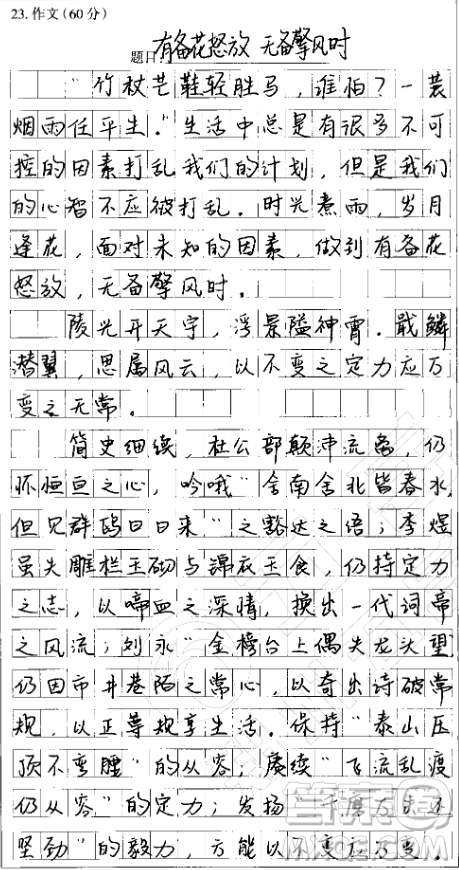 23.作文(60分)
题目 有备花怒放 无备擎风时
“竹杖芒鞋轻胜马，谁怕？一蓑
烟雨任平生。”生活中总是有很多不可
控的因素打乱我们的计划，但是我们
的心智不应被打乱。时光煮雨，岁月
逢花，面对未知的因素，做到有备花
怒放，无备擎风时。
陵光开天宇，浮景隘神霄。戢鳞
潜翼，思属风云，以不变之定力应万
变之无常。
简史细续，杜公部颠沛流离，仍
怀恒亘之心，吟哦“舍南舍北皆春水，
但见群鸥日日来”之豁达之语；李煜
虽失雕栏玉砌与锦衣玉食，仍持定力
之志，以啼血之深情，换出一代词帝
之风流；刘永“金榜台上偶失龙头望”
仍因市井巷陌之常心，以奇出诗破常
规，以正尊规享生活。保持“泰山压
顶不弯腰”的从容；赓续“飞流乱渡
仍从容”的定力；发扬“千磨万击还
坚劲”的毅力，方能以不变应万变。